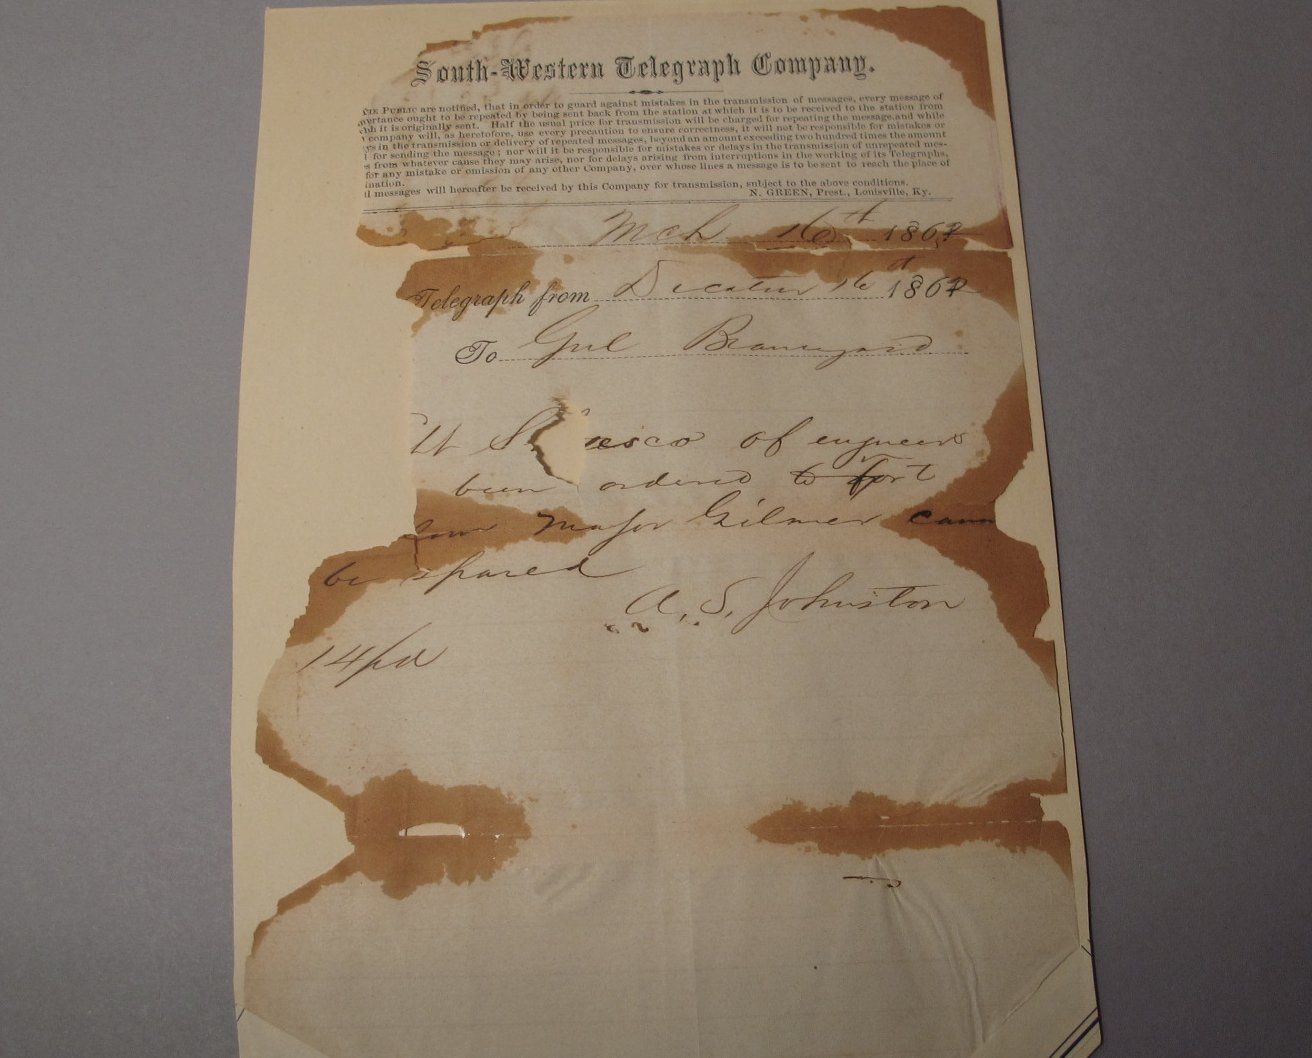 South-Western Telegraph Company.
THE PUBLIC are notified, that in order to guard against mistakes in the transmission of messages, every message of
ortance ought to be repeated by being sent back from the station at which it is to be received to the station from
ich it is originally sent. Half the usual price for transmission will be charged for repeating the message, and while
company will, as heretofore, use every precaution to ensure correctness, it will not be responsible for mistakes or
ys in the transmission or delivery of repeated messages, beyond an amount exceeding two hundred times the amount
for sending the message; nor will it be responsible for mistakes or delays in the transmission of unrepeated mes-
s from whatever cause they may arise, nor for delays arising from interruptions in the working of its Telegraphs,
for any mistake or omission of any other Company, over whose lines a message is to be sent to reach the place of
ination.
ll messages will hereafter be received by this Company for transmission, subject to the above conditions.
N. GREEN, Prest., Louisville, Ky.
Mch 16th 1862
Telegraph from Decatur 16 1862
To Genl Beauregard
Lt of engineers
been ordered to Fort
Major Gilmer cann
be spared
A. S. Johnston
14/pd